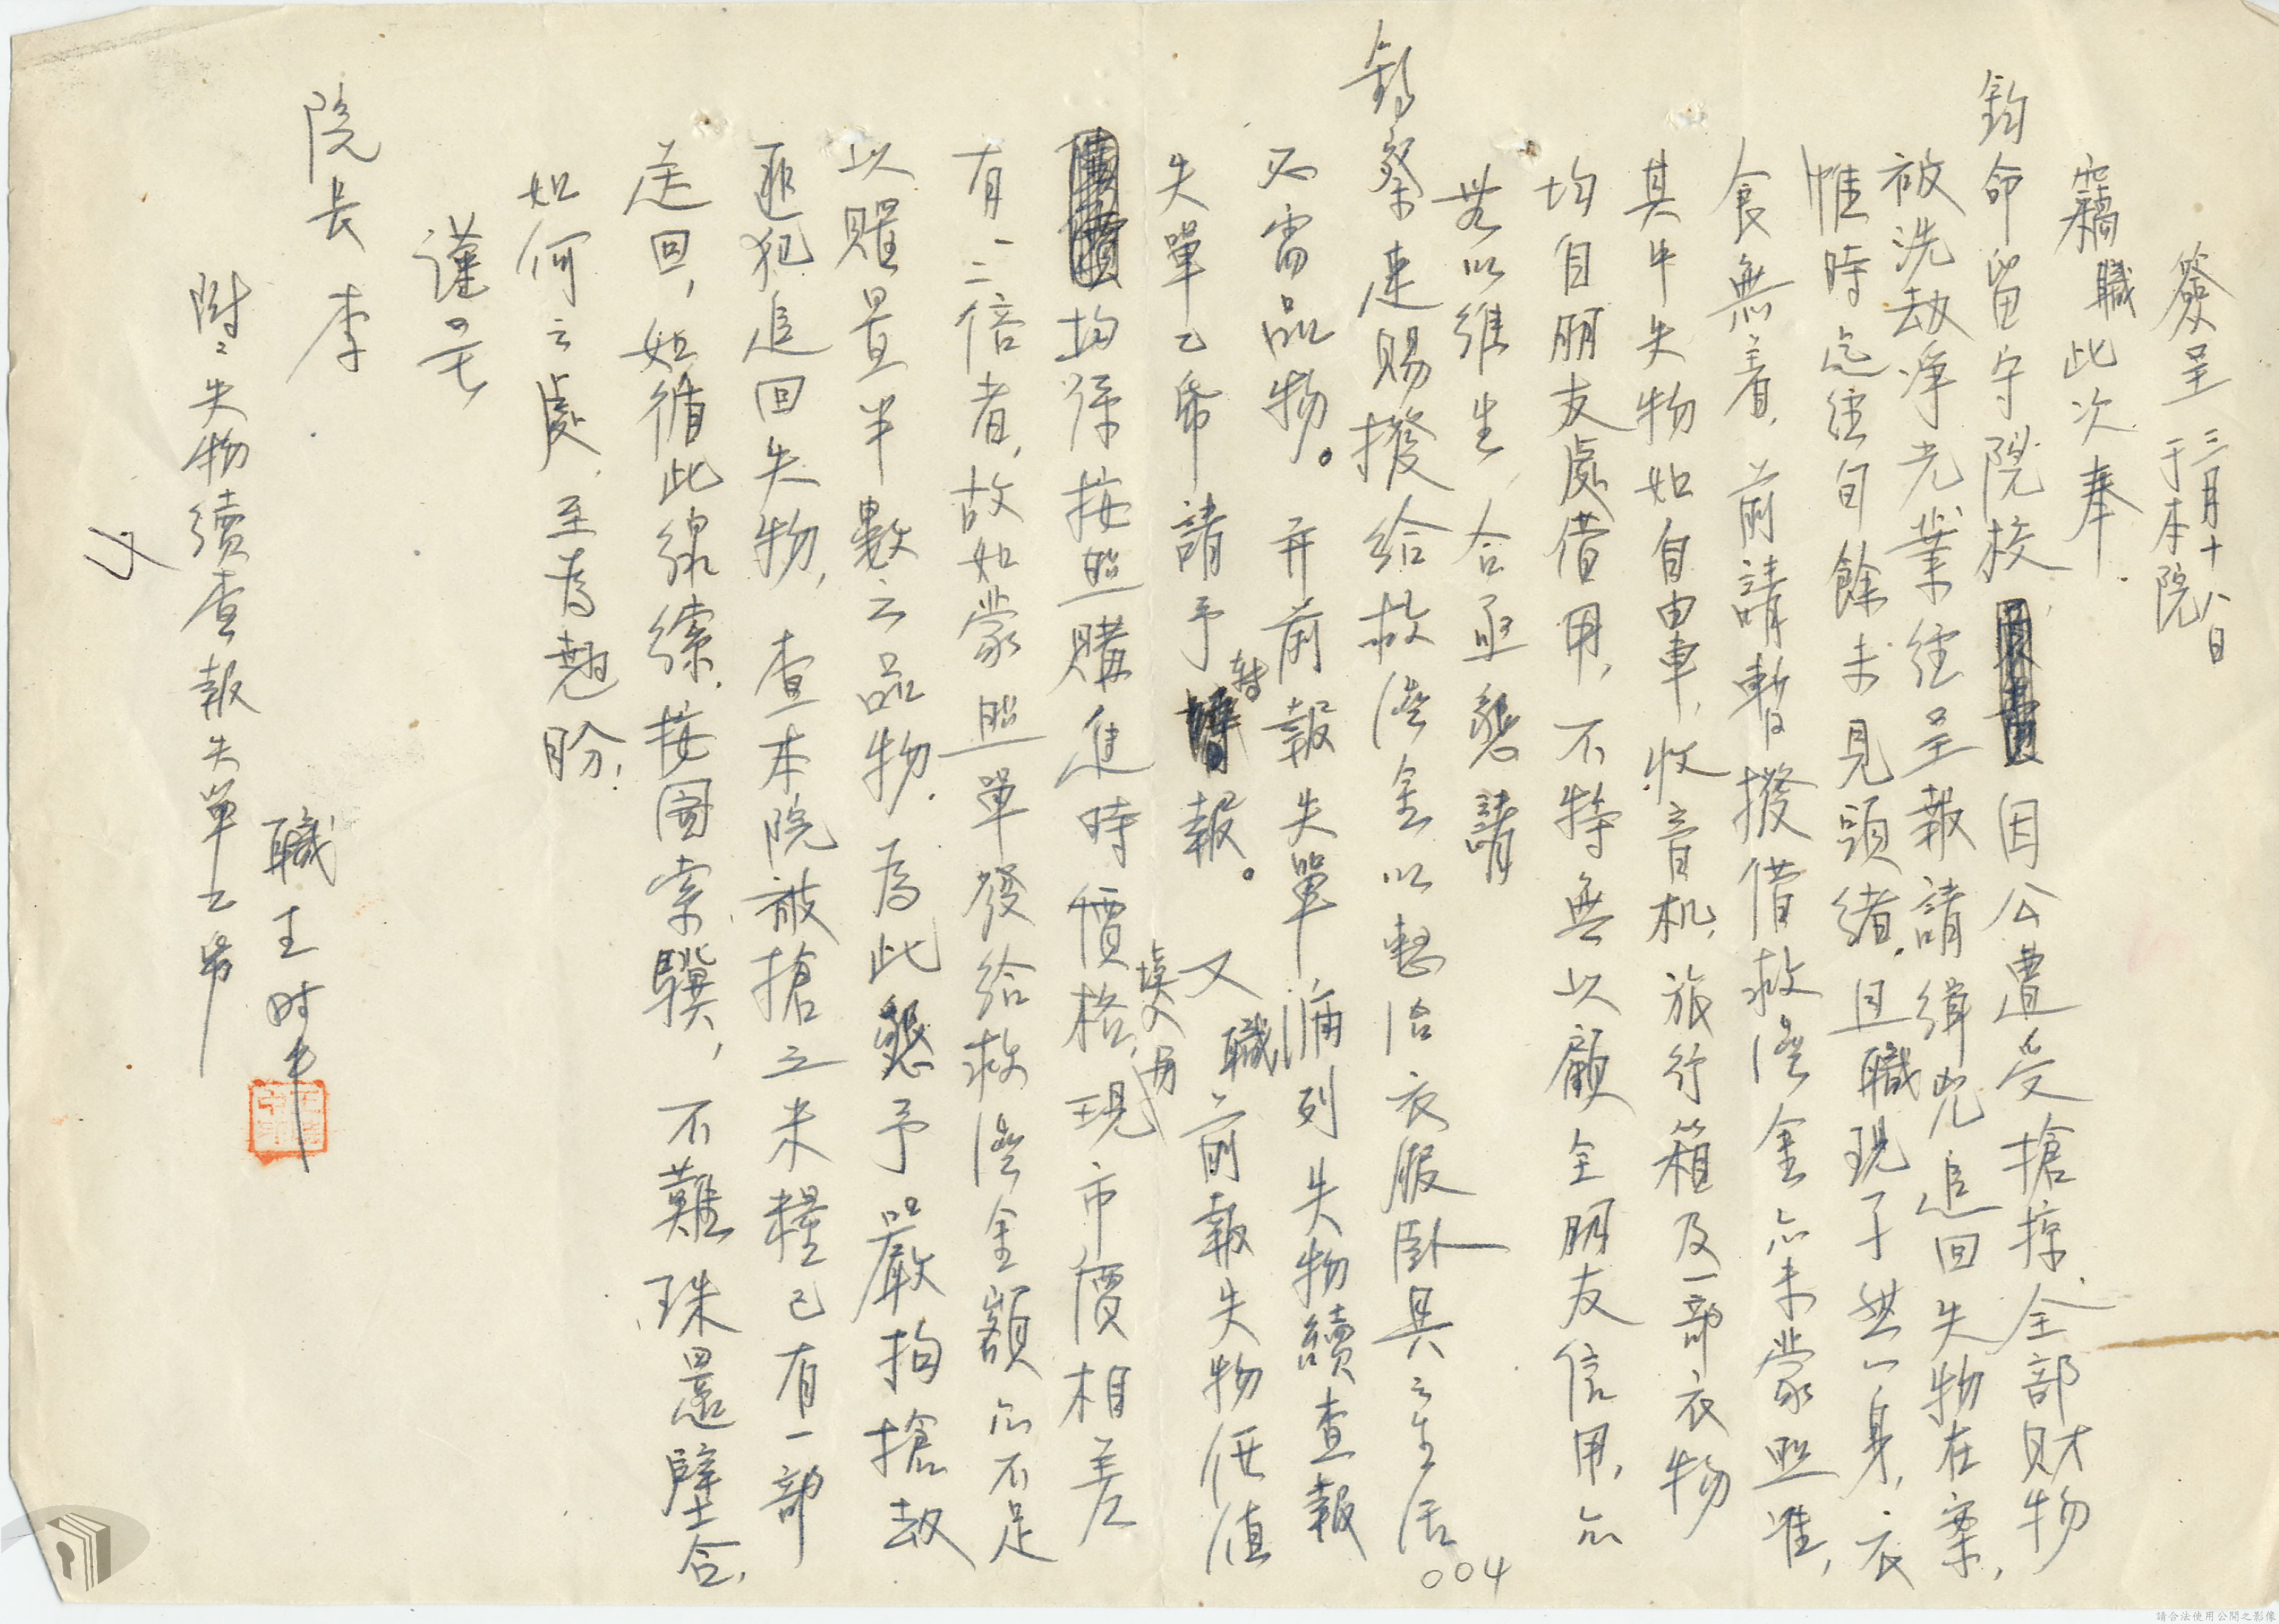 簽呈 三月十八日
于本院
竊職此次奉
鈞命留守院校，因公遭受搶掠，全部財物
被洗劫淨光，業經呈報請緝兇追回失物在案，
惟時迄經旬餘未見頭緒，且職現孑然一身，衣
食無着，前請暫撥借救濟金亦未蒙照准，
其中失物如自由車，收音机，旅行箱及一部衣物
均自朋友處借用，不特無以顧全朋友信用，亦
無以維生，合亟懇請
鈞察速賜撥給救濟金以整治衣服臥具之生活
必需品物。并前報失單漏列失物續查報
失單乙帋請予轉報。又職前報失物價值
均係按照購進時價格，現市價相差
有一二倍者，故如蒙照單發給救濟金額亦不足
以購置半數之品物，為此懇予嚴拘搶劫
匪犯追回失物，查本院被搶之米糧已有一部
追回，如循此線索，按圖索驥，不難珠還璧合，
如何之處，至為翹盼，
謹呈
院長李
職王时中
附：失物續查報失單乙帋
004
請合法使用公開之影像